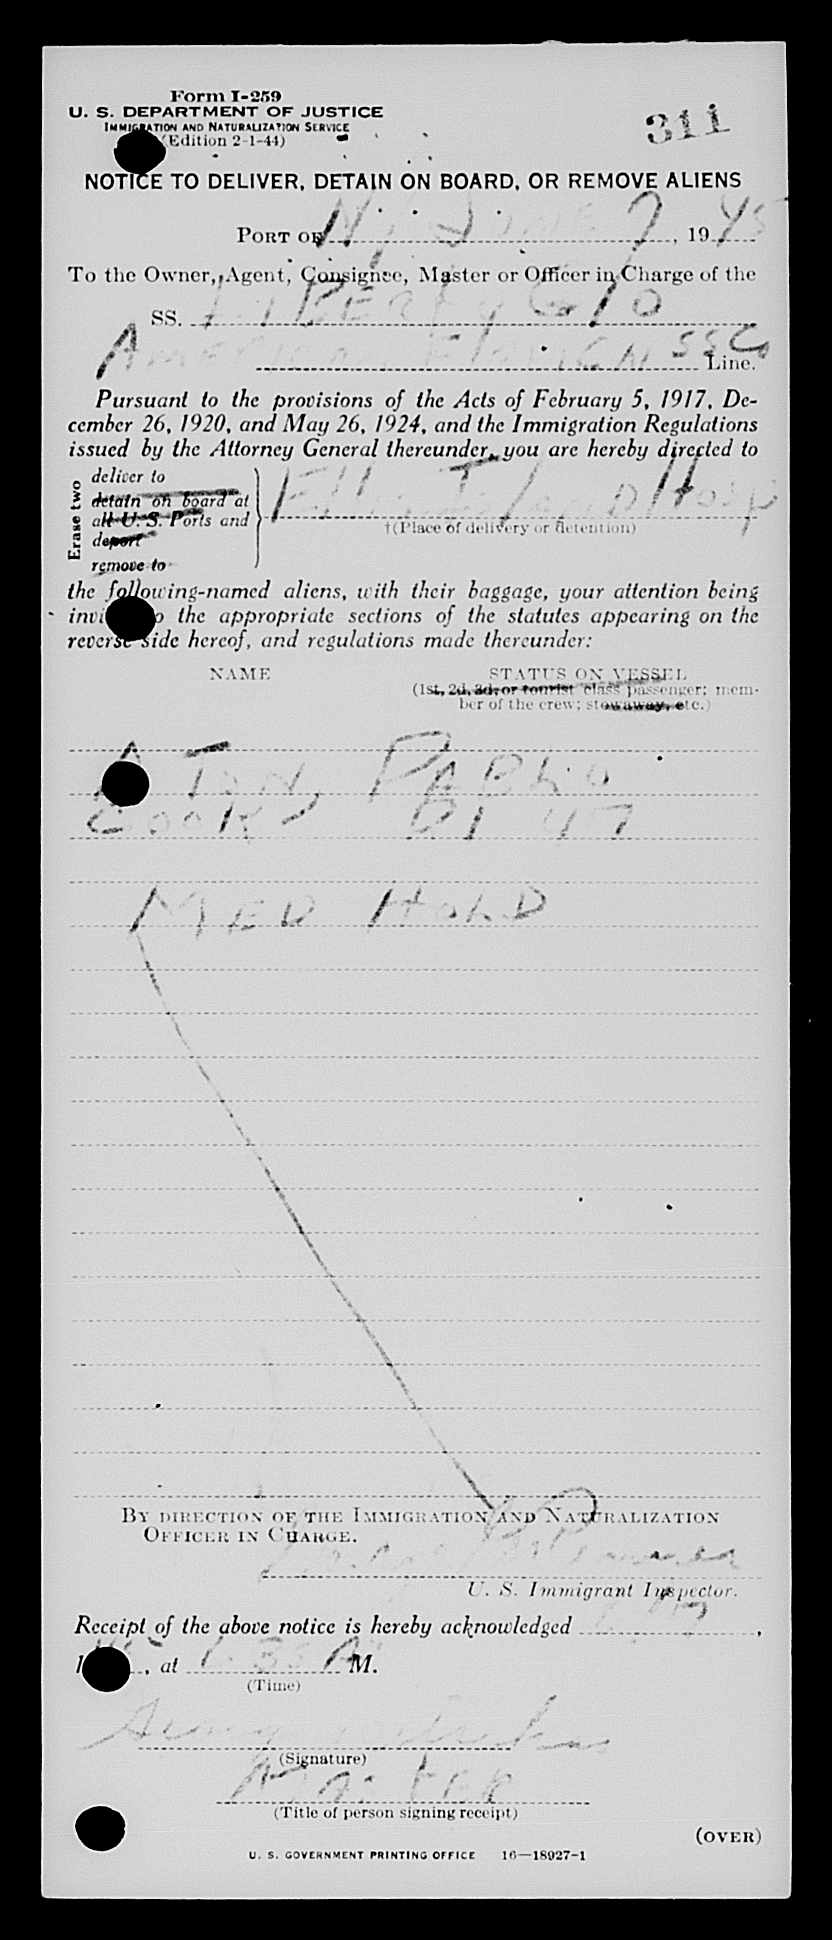 Form I-259
U. S. DEPARTMENT OF JUSTICE
IMMIGRATION AND NATURALIZATION SERVICE
(Edition 2-1-44)
311
NOTICE TO DELIVER, DETAIN ON BOARD, OR REMOVE ALIENS
PORT OF NY JUNE 7, 1945
To the Owner, Agent, Consignee, Master or Officer in Charge of the
SS. LIBERTY Glo
AMERICAN FOREIGN SS Co Line.
Pursuant to the provisions of the Acts of February 5, 1917, De-
cember 26, 1920, and May 26, 1924, and the Immigration Regulations
issued by the Attorney General thereunder, you are hereby directed to
Erase two
deliver to
detain on board at
all U. S. Ports and
deport
remove to
Ellis Island Hosp
†(Place of delivery or detention)
the following-named aliens, with their baggage, your attention being
invi o the appropriate sections of the statutes appearing on the
reverse side hereof, and regulations made thereunder:
NAME STATUS ON VESSEL
(1st, 2d, 3d, or tourist class passenger; mem-
ber of the crew; stowaway, etc.)
PABLO
COOK 47
MED HOLD
BY DIRECTION OF THE IMMIGRATION AND NATURALIZATION
OFFICER IN CHARGE.
U. S. Immigrant Inspector.
Receipt of the above notice is hereby acknowledged 7,
1 , at 1:35 A M.
(Time)
(Signature)
Master
(Title of person signing receipt)
(OVER)
U. S. GOVERNMENT PRINTING OFFICE 16—18927-1